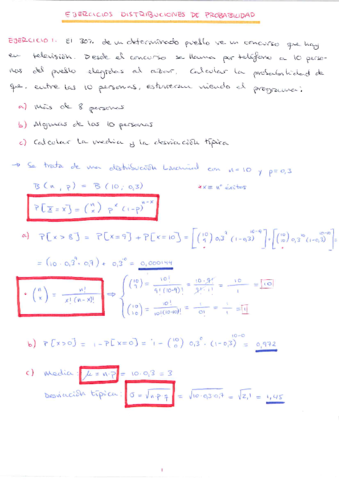 EJERCICIOS DISTRIBUCIONES DE PROBABILIDAD
EJERCICIO 1. El 30% de un determinado pueblo ve un concurso que hay
en televisión. Desde el concurso se llama por teléfono a 10 perso-
nas del pueblo elegidas al azar. Calcular la probabilidad de
que, entre las 10 personas, estuvieran viendo el programa:
a) Más de 8 personas
b) Algunas de las 10 personas
c) Calcular la media y la desviación típica
→ Se trata de una distribución binomial con n=10 y p=0,3
B(n, p) = B(10, 0,3)
P[X=x] = (n x) p^x (1-p)^n-x
a) P[x>8] = P[x=9] + P[x=10] = [(10 9) 0,3^9 (1-0,3)^10-9] + [(10 10) 0,3^10 (1-0,3)^10-10]
= (10·0,3^9·0,7) + 0,3^10 = 0,000144
* (n x) = n! / x!(n-x)! ⇒ (10 9) = 10! / 9!(10-9)! = 10·9! / 9!·1! = 10 / 1 = 10
(10 10) = 10! / 10!(10-10)! = 1 / 0! = 1 / 1 = 1
b) P[x>0] = 1-P[x=0] = 1 - (10 0) 0,3^0 · (1-0,3)^10-0 = 0,972
c) Media: μ = n·p = 10·0,3 = 3
Desviación típica: σ = √n·p·q = √10·0,3·0,7 = √2,1 = 1,45